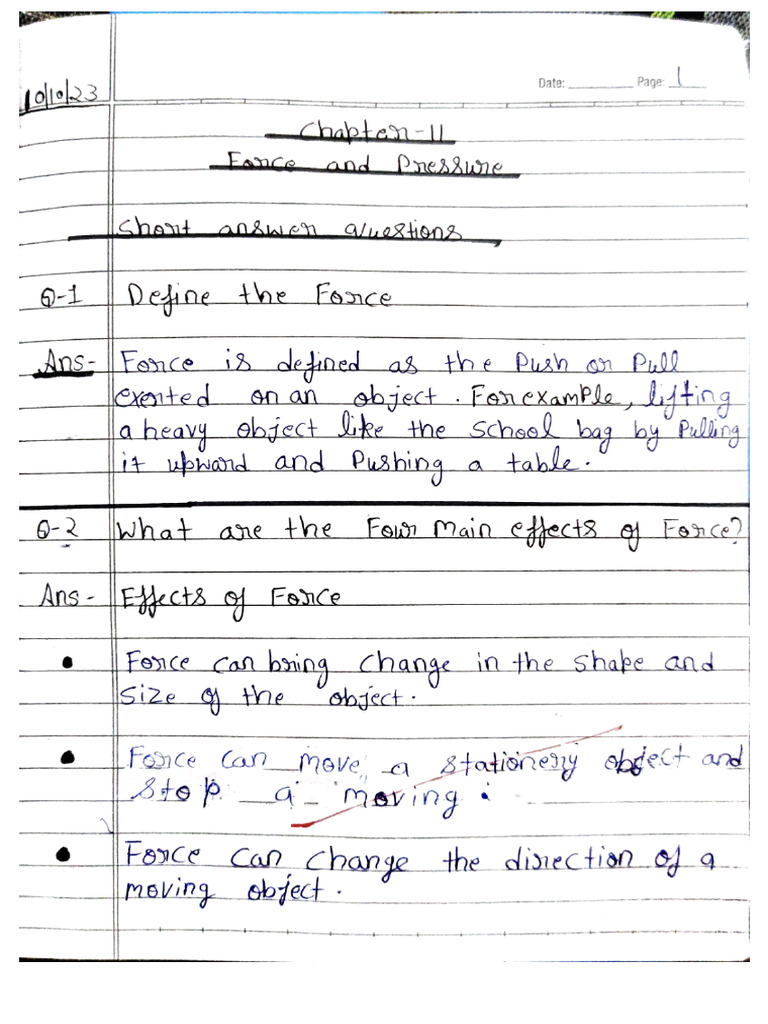 Date: Page: 1
10/10/23
Chapter-11
Force and Pressure
Short answer questions
Q-1 Define the Force
Ans- Force is defined as the Push or Pull
exerted on an object. For example, lifting
a heavy object like the School bag by Pulling
it upward and Pushing a table.
Q-2 What are the Four Main effects of Force?
Ans- Effects of Force
• Force can bring change in the shape and
size of the object.
• Force can move a stationery object and
stop a moving.
• Force can change the direction of a
moving object.